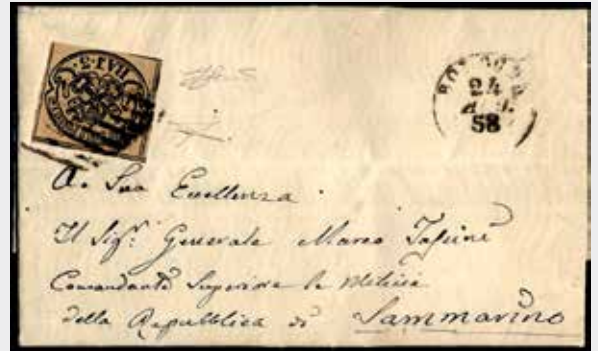 BAJ. 3.
BOLOGNA
24
58
A Sua Eccellenza
Il Sigr. Generale Marco
Comandante Superiore le Milizie
della Repubblica di Sammarino